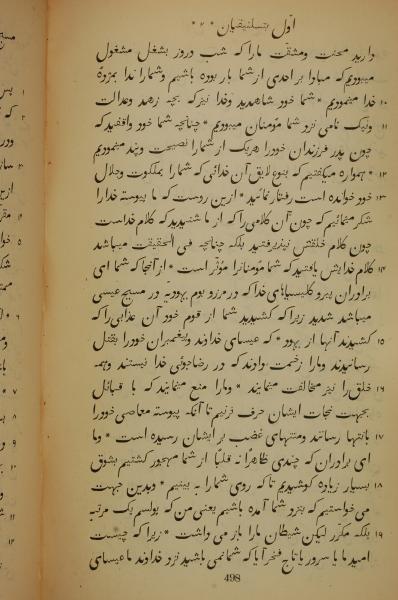 اوّل تسلنیقیان * ۲ *
دارید محنت و مشقّت مارا که شب و روز بشغل مشغول
میبودیم که مبادا بر احدی از شما بار بوده باشیم و شمارا ندا بمژدهٔ
۱۰ خدا مینمودیم * شما خود شاهدید و خدا نیز که بچه زهد و عدالت
۱۱ و نیک نامی نزد شما مؤمنان میبودیم * چنانچه شما خود واقفید که
چون پدر فرزندان خودرا هریک از شمارا نصیحت و پند مینمودیم
۱۲ * همواره میگفتیم که بنوع لایق آن خدائی که شمارا بملکوت و جلال
۱۳ خود خوانده است رفتار نمائید * ازین روست که ما پیوسته خدارا
شکر مینمائیم که چون آن کلامی را که از ما شنیدید که کلام خداست
چون کلام خلقش نپذیرفتید بلکه چنانچه فی الحقیقت میباشد
۱۴ کلام خدایش یافتید که شما مؤمنانرا مؤثّر است * از آنجا که شما ای
برادران پیرو کلیسیاهای خدا که در مرز و بوم یهودیه در مسیح عیسی
میباشد شدید زیرا که کشیدید شما از قوم خود آن عذابی را که
۱۵ کشیدند آنها از یهود * که عیسای خداوند و پیغمبران خودرا بقتل
رسانیدند و مارا زحمت دادند که در رضاجوئی خدا نیستند و همه
۱۶ خلق را نیز مخالفت مینمایند * و مارا منع مینمایند که با قبائل
بجهت نجات ایشان حرف نزنیم تا آنکه پیوسته معاصی خودرا
۱۷ بانتها رسانند و منتهای غضب بر ایشان رسیده است * و ما
ای برادران که چندی ظاهرًا نه قلبًا از شما مهجور گشتیم بشوق
۱۸ بسیار زیاده کوشیدیم تا که روی شمارا به بینیم * و بدین جهت
می خواستیم که بنزد شما آمده باشیم یعنی من که پولسم یک مرتبه
۱۹ بلکه مکرّر لیکن شیطان مارا باز می داشت * زیرا که چیست
امید ما یا سرور یا تاج فخر آیا که شما نمی باشید نزد خداوند ما عیسای
498